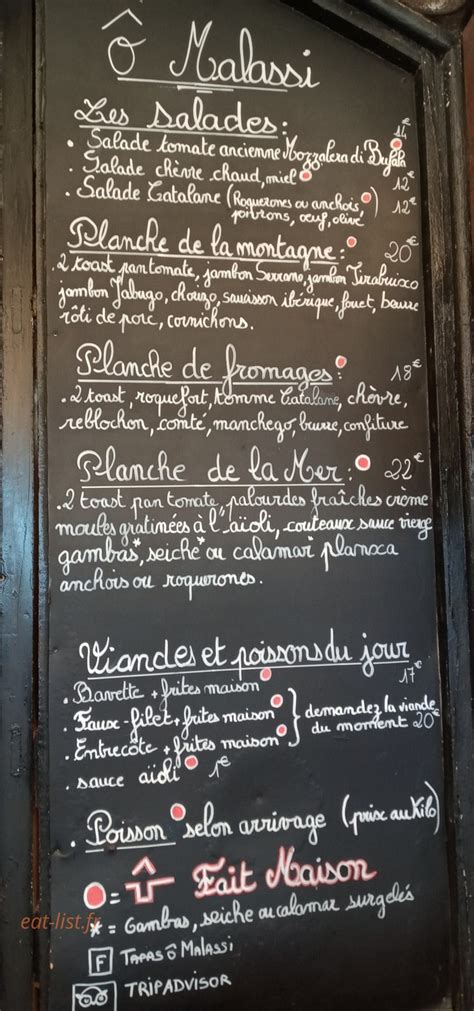 Ô Malassi
Les Salades:
14€
• Salade tomate ancienne Mozzalera di Bufala
• Salade chèvre chaud, miel 12€
• Salade Catalane (Roquerones ou anchois, 12€
poivrons, oeuf, olive)
Planche de la montagne: 20€
• 2 toast pan tomate, jambon Serrano, jambon Tirabuixo
jambon Jabugo, chorizo, saucisson ibérique, fouet, beurre
rôti de porc, cornichons.
Planche de fromages: 18€
• 2 toast, roquefort, tomme Catalane, chèvre,
reblochon, comté, manchego, burre, confiture
Planche de la Mer: 22€
• 2 toast pan tomate palourdes fraîches crème
moules gratinées à l'aïoli, couteaux sauce vierge
gambas*, seiche* ou calamar planxa
anchois ou roquerones.
Viandes et poissons du jour
17€
• Bavette + frites maison
• Faux-filet + frites maison } demandez la viande
• Entrecôte + frites maison } du moment 20€
• sauce aïoli 1€
• Poisson selon arrivage (prix au Kilo)
= Fait Maison
* = Gambas, seiche ou calamar surgelés
F Tapas ô Malassi
TRIPADVISOR
eat-list.fr